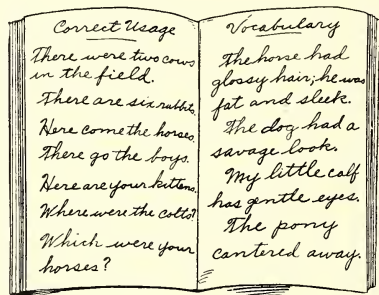 Correct Usage
There were two cows
in the field.
There are six rabbits.
Here come the horses.
There go the boys.
Here are your kittens.
Where were the colts?
Which were your
horses?
Vocabulary
The horse had
glossy hair; he was
fat and sleek.
The dog had a
savage look.
My little calf
has gentle eyes.
The pony
cantered away.